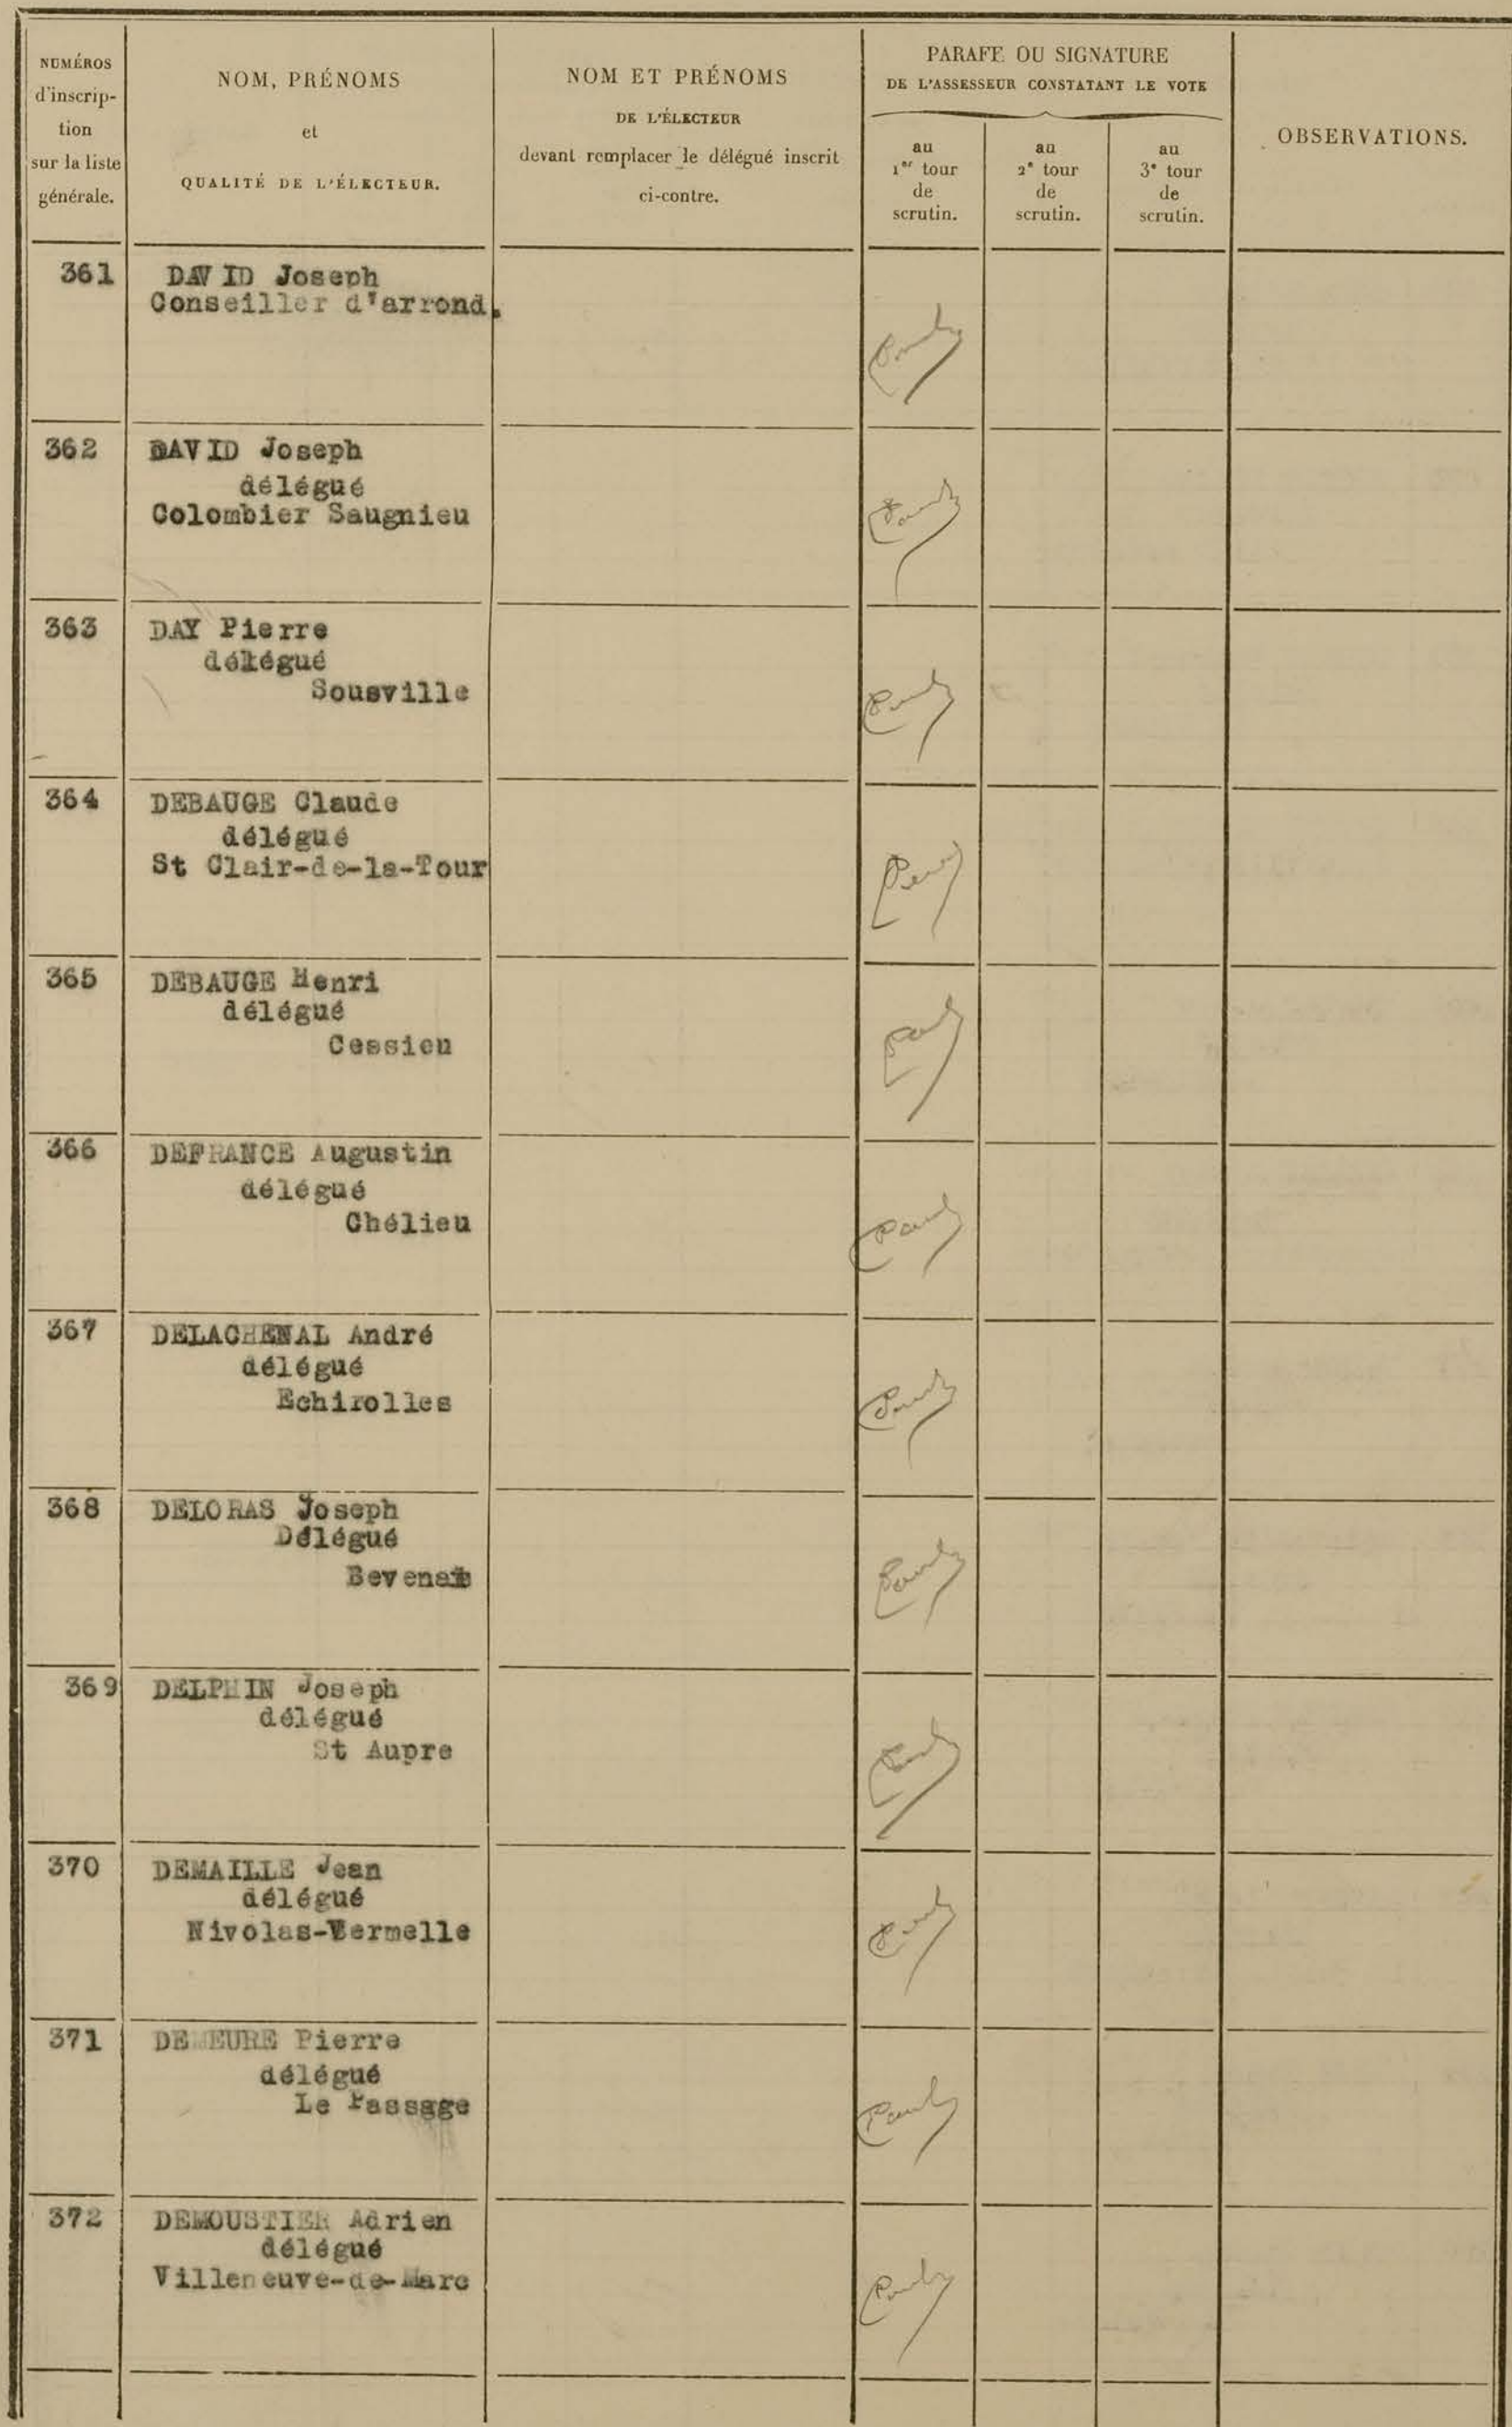 NUMÉROS
d'inscrip-
tion
sur la liste
générale.
NOM, PRÉNOMS
et
QUALITÉ DE L'ÉLECTEUR.
NOM ET PRÉNOMS
DE L'ÉLECTEUR
devant remplacer le délégué inscrit
ci-contre.
PARAFE OU SIGNATURE
DE L'ASSESSEUR CONSTATANT LE VOTE
au
1er tour
de
scrutin.
au
2e tour
de
scrutin.
au
3e tour
de
scrutin.
OBSERVATIONS.
361 DAVID Joseph
Conseiller d'arrond.
362 DAVID Joseph
délégué
Colombier Saugnieu
363 DAY Pierre
délégué
Sousville
364 DEBAUGE Claude
délégué
St Clair-de-la-Tour
365 DEBAUGE Henri
délégué
Cessieu
366 DEFRANCE Augustin
délégué
Chélieu
367 DELACHENAL André
délégué
Echirolles
368 DELORAS Joseph
Délégué
Bevenais
369 DELPHIN Joseph
délégué
St Aupre
370 DEMAILLE Jean
délégué
Nivolas-Vermelle
371 DEMEURE Pierre
délégué
Le Passage
372 DEMOUSTIER Adrien
délégué
Villeneuve-de-Marc